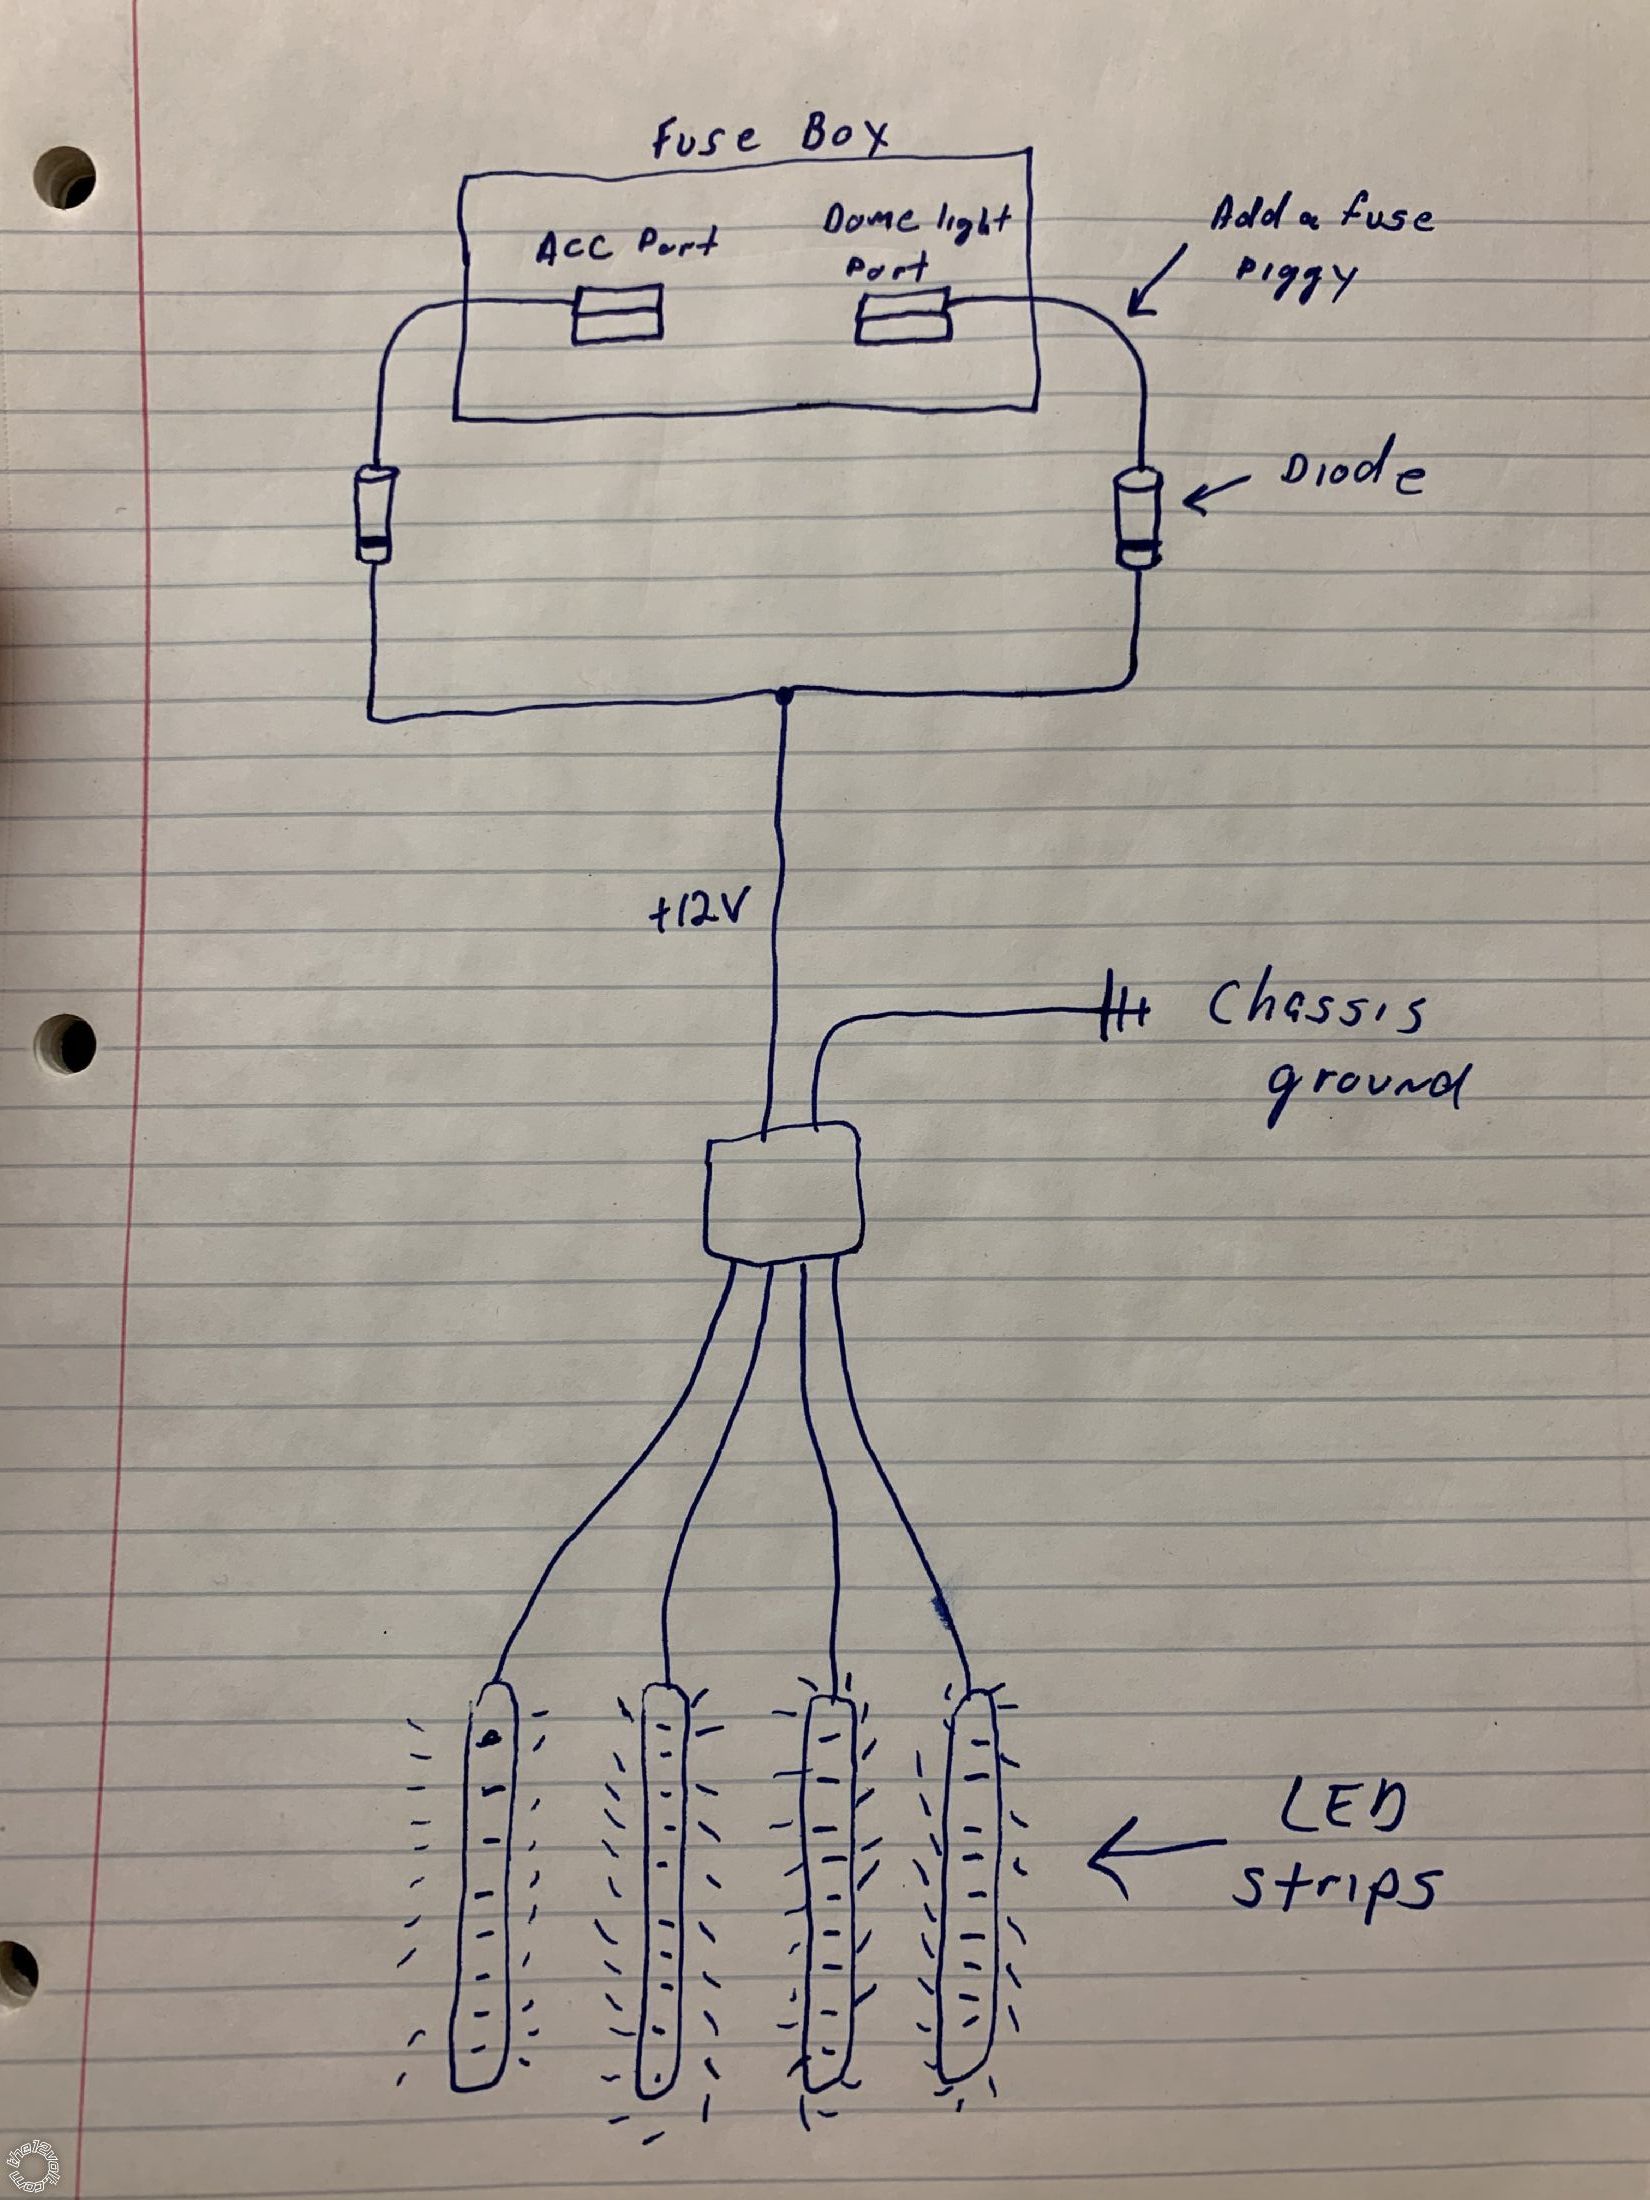 Fuse Box
Acc Port
Dome light
Port
Add a fuse
piggy
Diode
+12V
Chassis
ground
LED
strips
the12volt.com